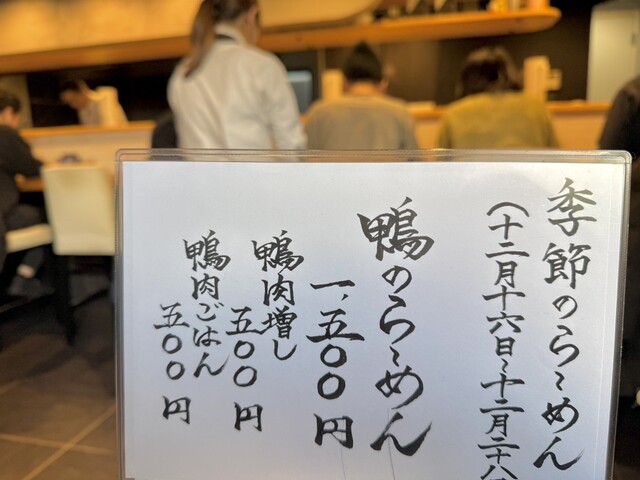 季節のらーめん
(十二月十六日〜十二月二十八
鴨のらーめん
一、五〇〇円
鴨肉増し
五〇〇円
鴨肉ごはん
五〇〇円